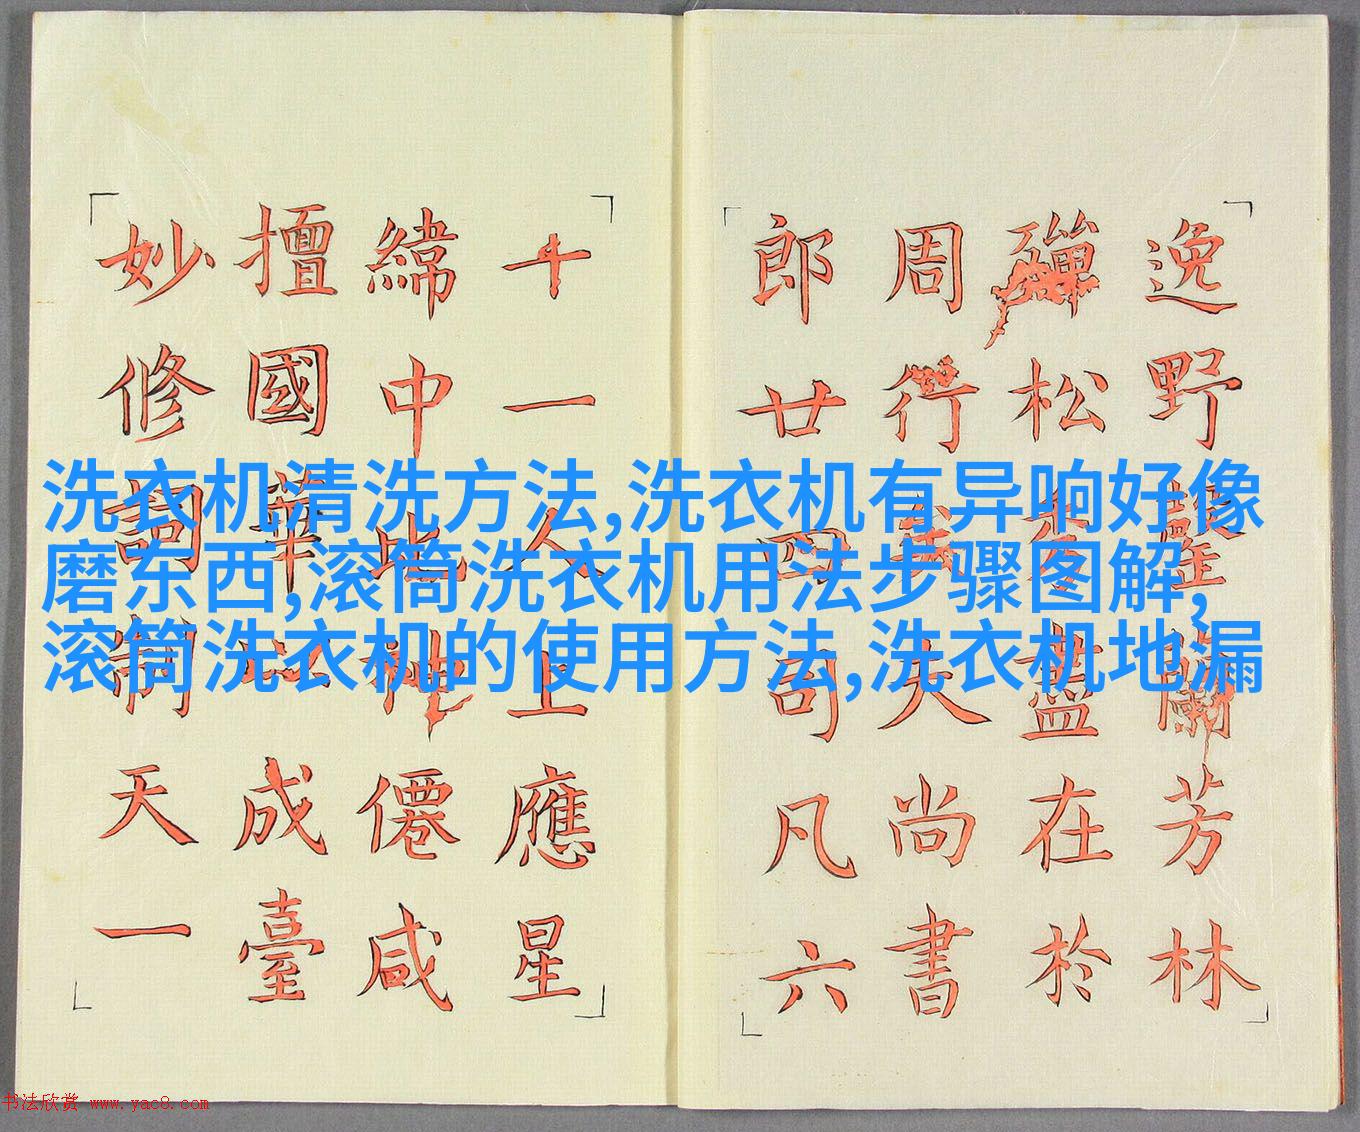 洗衣机清洗方法,洗衣机有异响好像
磨东西,滚筒洗衣机用法步骤图解,
滚筒洗衣机的使用方法,洗衣机地漏
逸野蘭芳林
殫松盖在於
周行大尚書
郎廿四司凡六
十一人上應星
緯中此神僊咸
擅國華以成臺
妙修詞制天一
书法欣赏 www.yac8.com